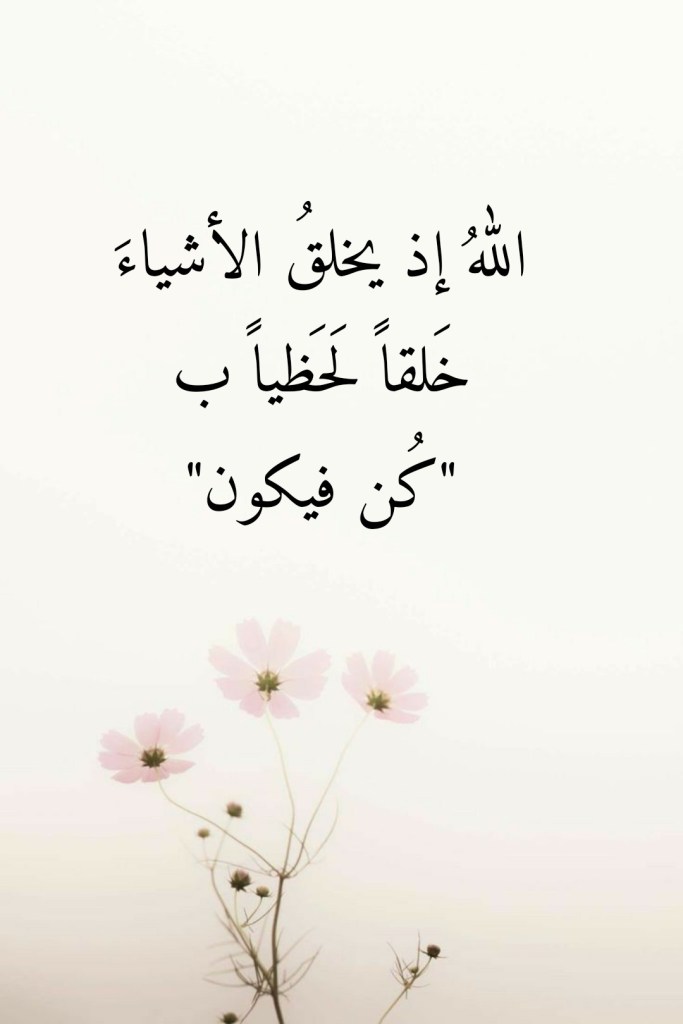 اللهُ إذ يخلقُ الأشياءَ
خَلقاً لَحَظياً ب
"كُن فيكون"